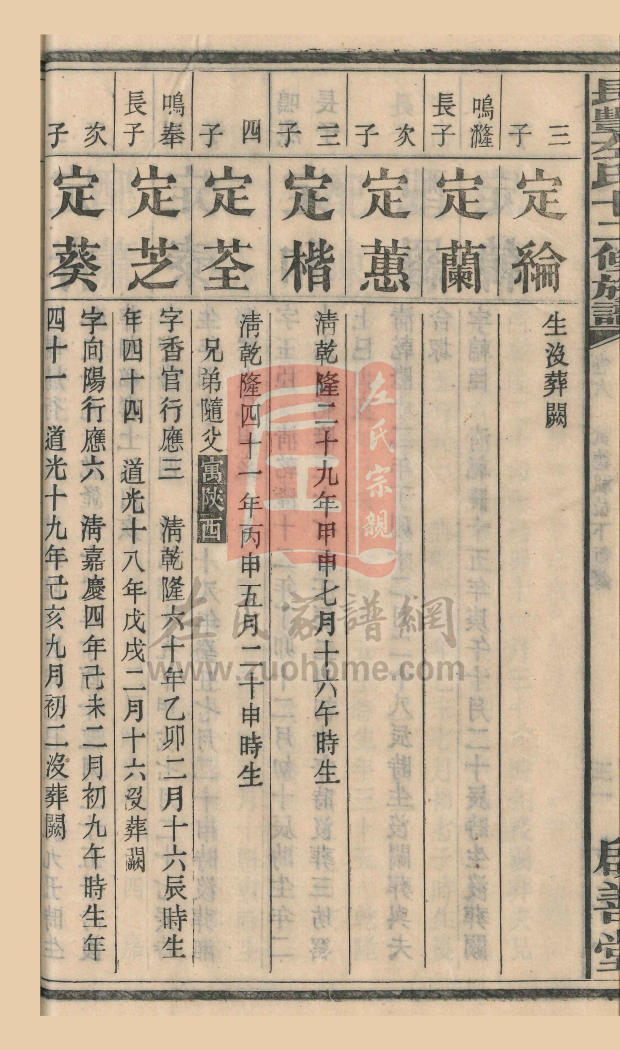 長豐左氏十二修族譜
啟善堂
三子
定綸
生沒葬闕
鳴漋長子
定蘭
次子
定蕙
三子
定楷
清乾隆二十九年甲申七月十六午時生
四子
定荃
清乾隆四十一年丙申五月二十申時生
兄弟隨父寓陝西
鳴奉長子
定芝
字香官行應三 清乾隆六十年乙卯二月十六辰時生
年四十四 道光十八年戊戌二月十六沒葬闕
次子
定葵
字向陽行應六 清嘉慶四年己未二月初九午時生年
四十一 道光十九年己亥九月初二沒葬闕
左氏宗親
左氏家譜網
www.zuohome.com